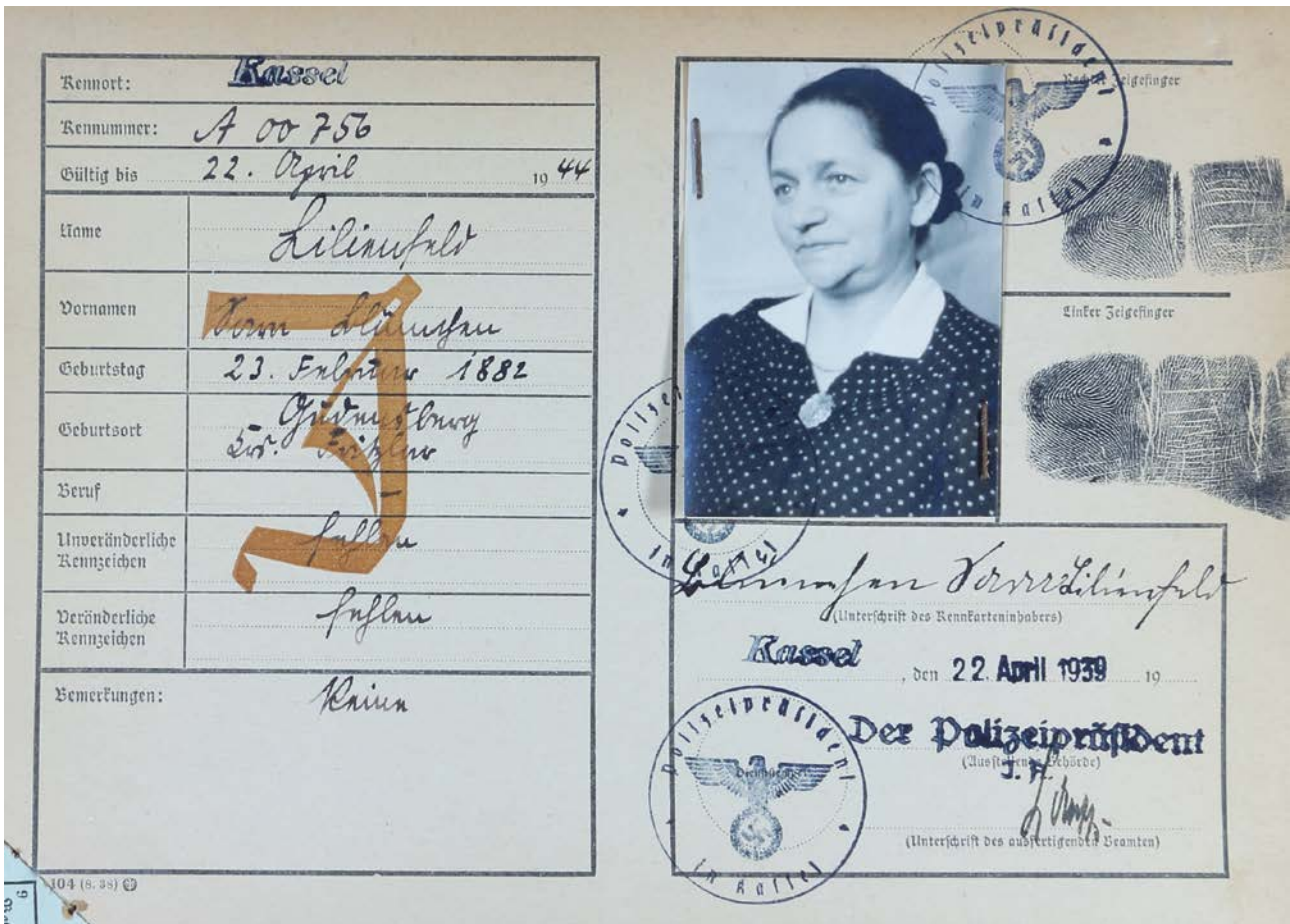 Kennort: Kassel
Kennummer: A 00 756
Gültig bis 22. April 1944
Name Lilienfeld
Vornamen Sara Blümchen
Geburtstag 23. Februar 1882
Geburtsort Gudensberg
Krs. Fritzlar
Beruf –
Unveränderliche
Kennzeichen fehlen
Veränderliche
Kennzeichen fehlen
Bemerkungen: Keine
J
104 (8. 38)
Polizeipräsident
in Kassel
Rechter Zeigefinger
Linker Zeigefinger
Polizei
in Kassel
Blümchen Sara Lilienfeld
(Unterschrift des Kennkarteninhabers)
Kassel, den 22. April 1939 19
Der Polizeipräsident
(Ausstellende Behörde)
J. A.
(Unterschrift des ausfertigenden Beamten)
Polizeipräsident
Dienststempel
in Kassel